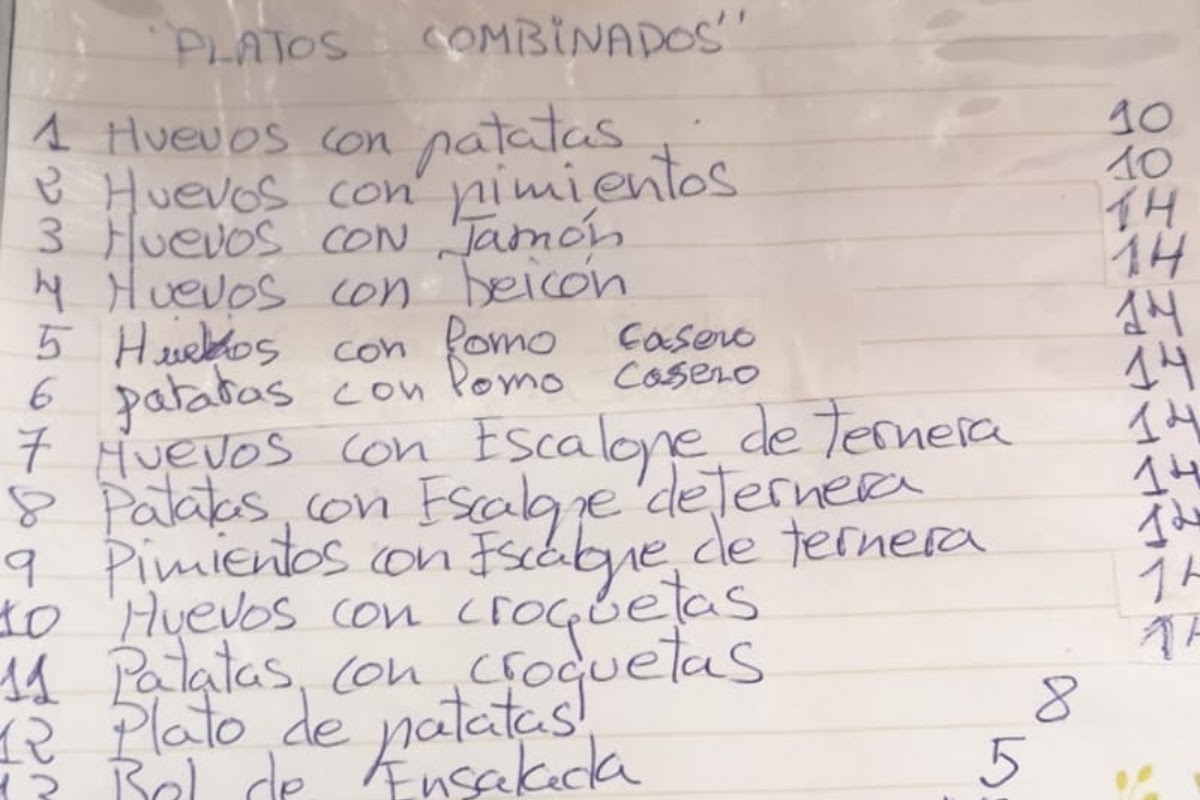 "PLATOS COMBINADOS"
1 Huevos con patatas 10
2 Huevos con pimientos 10
3 Huevos CON Jamón 14
4 Huevos con beicón 14
5 Huevos con Lomo Casero 14
6 patatas con Lomo Casero 14
7 Huevos con Escalope de Ternera 14
8 Patatas con Escalope de Ternera 14
9 Pimientos con Escalope de ternera 14
10 Huevos con croquetas 14
11 Patatas con croquetas 14
12 Plato de patatas 8
13 Bol de Ensalada 5